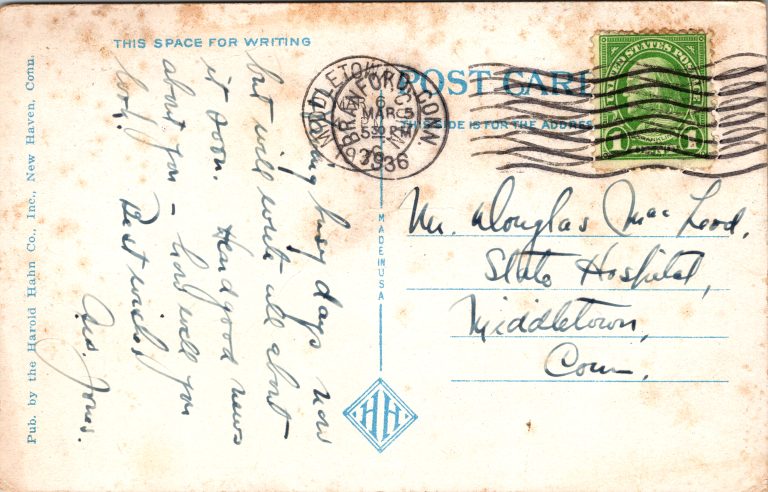 THIS SPACE FOR WRITING
POST CARD
THIS SIDE IS FOR THE ADDRESS
UNITED STATES POSTAGE
1 1
MIDDLETOWN CONN.
BRANFORD CONN
MAR 6
MAR 5
5 30 PM
1936
busy days now
but will write all about
it soon. Heard good news
about you – how well you
look!
Best wishes,
Jones.
Mr. Douglas MacLeod,
State Hospital,
Middletown,
Conn.
MADE IN USA
HH
Pub. by the Harold Hahn Co., Inc., New Haven, Conn.